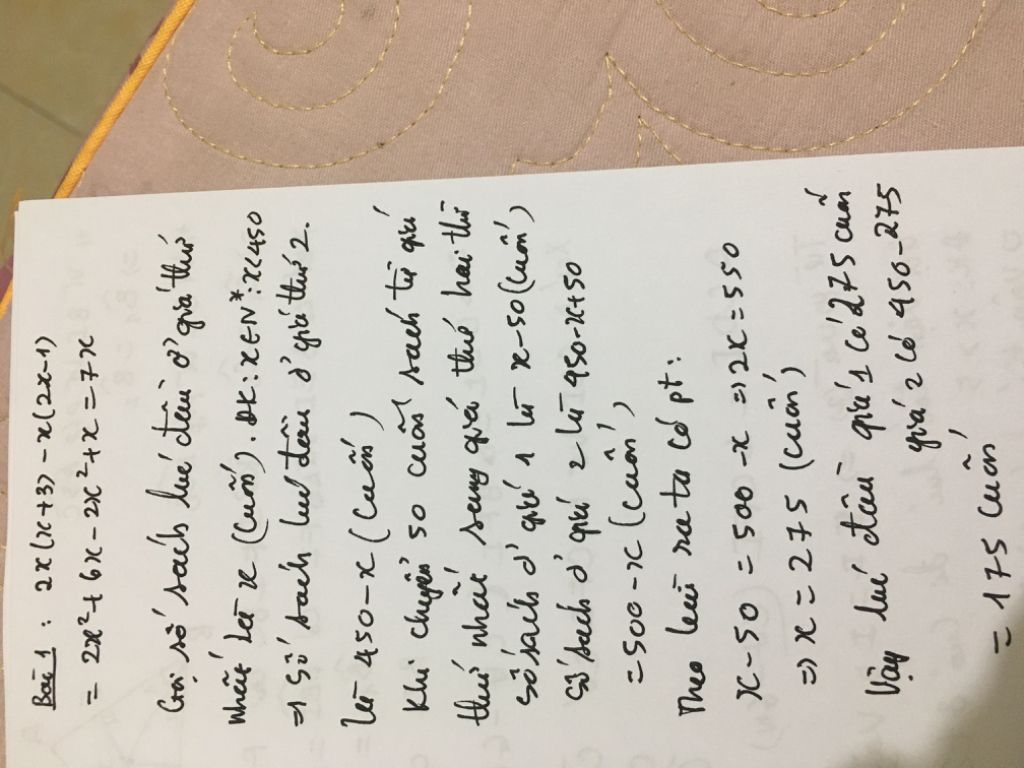 Bài 1 : 2x(x+3) - x(2x-1)
= 2x² + 6x - 2x² + x = 7x
Gọi số sách lúc đầu ở giá thứ
nhất là x (cuốn). ĐK: x ∈ N*: x<450
⇒ số sách lúc đầu ở giá thứ 2.
là 450-x (cuốn)
Khi chuyển 50 cuốn sách từ giá
thứ nhất sang giá thứ hai thì
số sách ở giá 1 là x-50 (cuốn)
số sách ở giá 2 là 450-x+50
= 500-x (cuốn)
Theo bài ra ta có pt:
x-50 = 500-x ⇒ 2x = 550
⇒ x = 275 (cuốn)
Vậy lúc đầu giá 1 có 275 cuốn
giá 2 có 450-275
= 175 cuốn